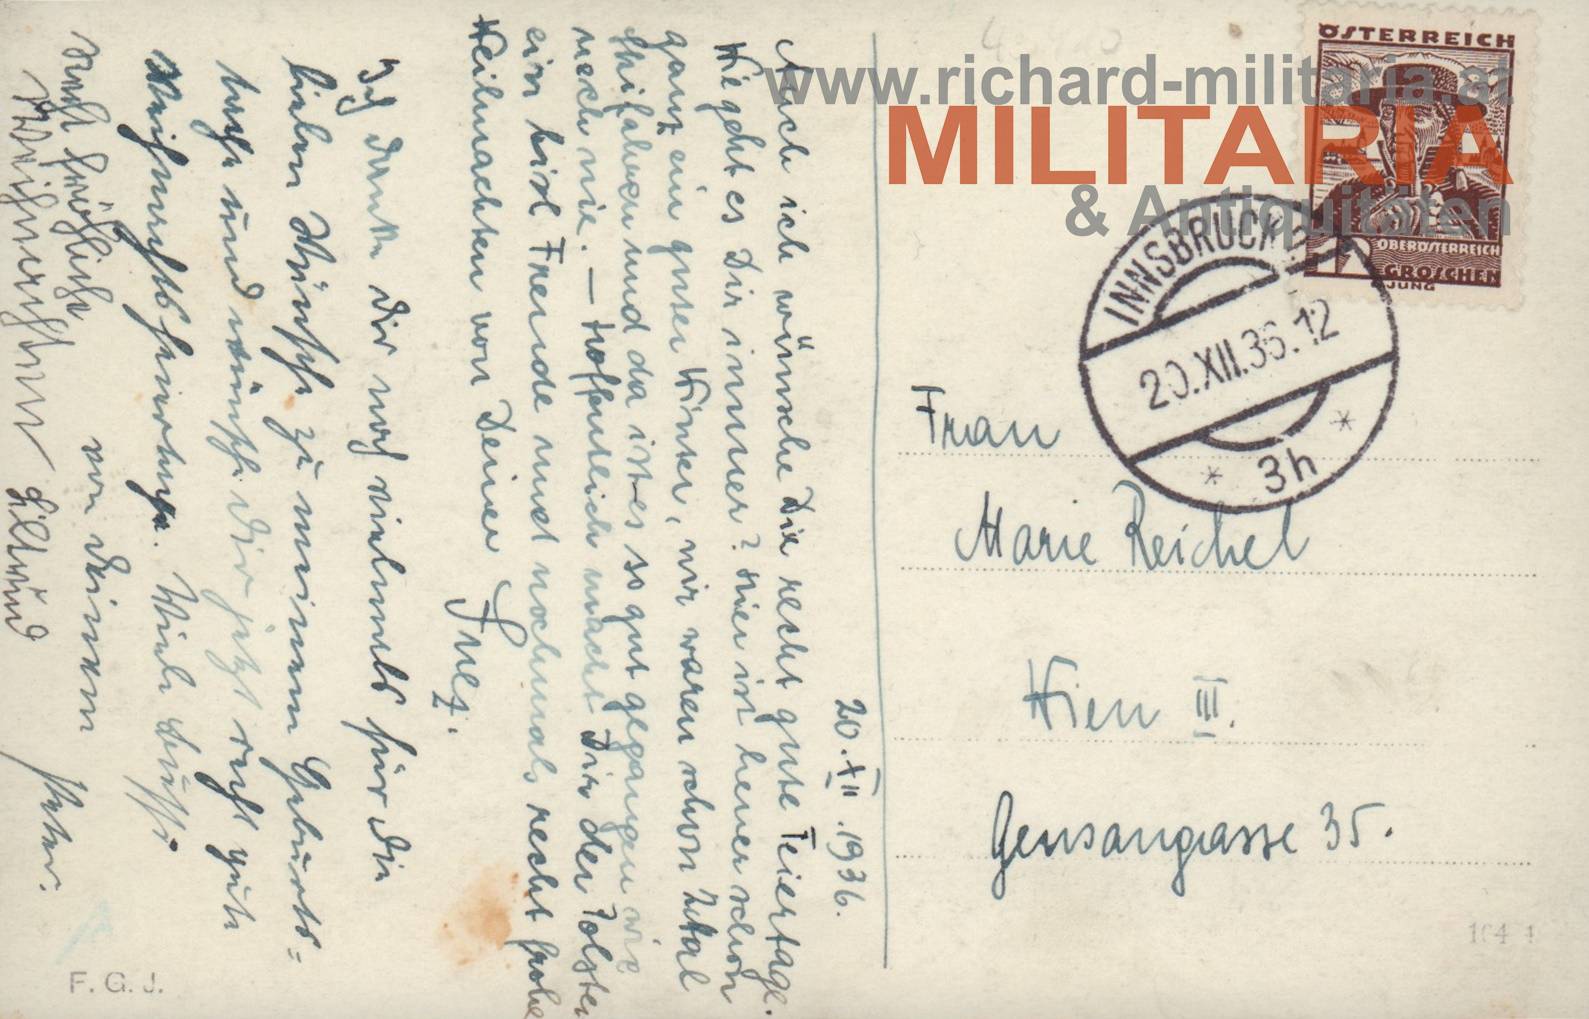 20.XII.1936.
Auch ich wünsche Dir recht gute Feiertage.
Wie geht es Dir immer? Hier ist heuer schon
ganz ein guter Winter, wir waren schon 2mal
Skifahren und da ist es so gut gegangen wie
noch nie. — Hoffentlich macht Dir der Polster
ein bisl Freude und nochmals recht frohe
Weihnachten von Deiner Inez.
Ich danke Dir noch vielmals für die
lieben Wünsche zu meinem Geburts-
tage und wünsche Dir jetzt recht gute
Weihnachtsfeiertage. Viele Bussi
von Deinem Peter.
Recht fröhliche
Weihnachten
Frau
Marie Reichel
Wien III.
Gensaugasse 35.
ÖSTERREICH
OBERÖSTERREICH
GROSCHEN
JUNG
INNSBRUCK 2
20.XII.36.12
* 3h *
F. G. J.
www.richard-militaria.at
MILITARIA
& Antiquitäten